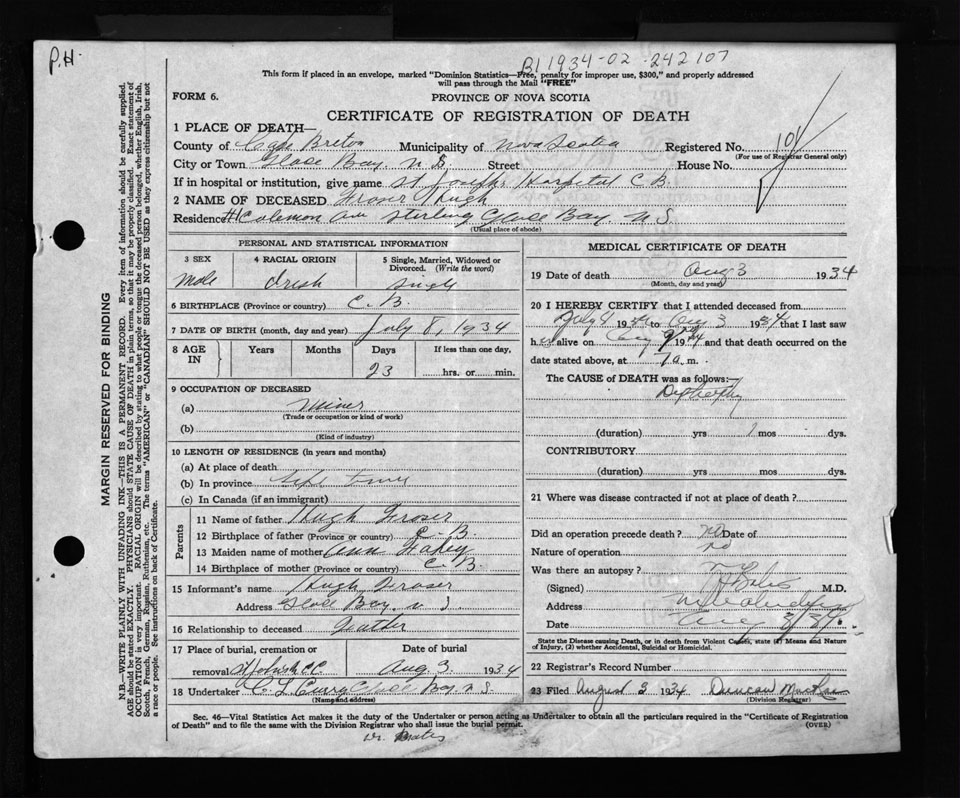 P.H.
B1 1934-02-242107
This form if placed in an envelope, marked "Dominion Statistics—Free, penalty for improper use, $300," and properly addressed
will pass through the Mail "FREE"
FORM 6.
PROVINCE OF NOVA SCOTIA
CERTIFICATE OF REGISTRATION OF DEATH
1 PLACE OF DEATH—
County of Cape Breton Municipality of Nova Scotia Registered No.
(For use of Registrar General only)
City or Town Glace Bay, N.S. Street House No.
If in hospital or institution, give name St Josephs Hospital C B.
2 NAME OF DECEASED Fraser Hugh
Residence Coleman Ave Sterling Glace Bay N.S.
(Usual place of abode)
MARGIN RESERVED FOR BINDING
N.B.—WRITE PLAINLY WITH UNFADING INK—THIS IS A PERMANENT RECORD. Every item of information should be carefully supplied.
AGE should be stated EXACTLY. PHYSICIANS should STATE CAUSE OF DEATH in plain terms, so that it may be properly classified. Exact statement of
OCCUPATION is very important. RACIAL ORIGIN will be described by stating to what people or tongue the deceased person belonged, whether English, Irish,
Scotch, French, German, Russian, Ruthenian, etc. The terms "AMERICAN" or "CANADIAN" SHOULD NOT BE USED as they express citizenship but not
a race or people. See instructions on back of Certificate.
PERSONAL AND STATISTICAL INFORMATION
3 SEX
Male
4 RACIAL ORIGIN
Irish
5 Single, Married, Widowed or
Divorced. (Write the word)
Single
6 BIRTHPLACE (Province or country) C. B.
7 DATE OF BIRTH (month, day and year) July 8, 1934
8 AGE IN
Years Months Days If less than one day,
23 hrs. or min.
9 OCCUPATION OF DECEASED
(a) Miner
(Trade or occupation or kind of work)
(b)
(Kind of industry)
10 LENGTH OF RESIDENCE (in years and months)
(a) At place of death
(b) In province life time
(c) In Canada (if an immigrant)
Parents
11 Name of father Hugh Fraser
12 Birthplace of father (Province or country) C. B.
13 Maiden name of mother Ann
14 Birthplace of mother (Province or country) C. B.
15 Informant's name Hugh Fraser
Address Glace Bay. N. S.
16 Relationship to deceased Father
17 Place of burial, cremation or Date of burial
removal Aug 3. 1934
18 Undertaker C L Curry Glace Bay N S.
(Name and address)
MEDICAL CERTIFICATE OF DEATH
19 Date of death Aug 3 1934
(Month, day and year)
20 I HEREBY CERTIFY that I attended deceased from
July 1934 to Aug 3 1934 that I last saw
h alive on Aug 1934 and that death occurred on the
date stated above, at 7 a.m.
The CAUSE of DEATH was as follows:—
(duration) yrs 1 mos dys.
CONTRIBUTORY
(duration) yrs mos dys.
21 Where was disease contracted if not at place of death?
Did an operation precede death? no Date of
Nature of operation no
Was there an autopsy?
(Signed) M.D.
Address
Date Aug 3/34.
State the Disease causing Death, or in death from Violent Causes, state (1) Means and Nature
of Injury, (2) whether Accidental, Suicidal or Homicidal.
22 Registrar's Record Number
23 Filed August 3 1934 Duncan
(Division Registrar)
Sec. 46—Vital Statistics Act makes it the duty of the Undertaker or person acting as Undertaker to obtain all the particulars required in the "Certificate of Registration
of Death" and to file the same with the Division Registrar who shall issue the burial permit.
(OVER)